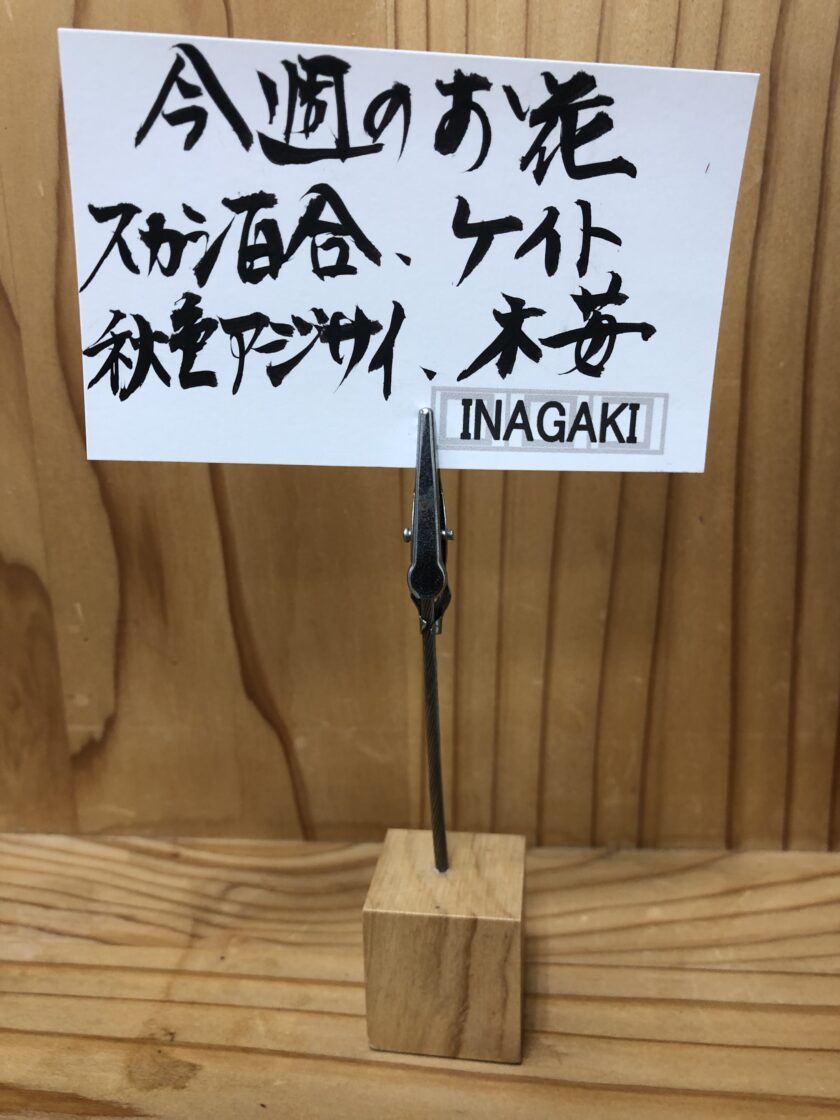 今週のお花
スカシ百合、ケイト
秋色アジサイ、木苺
INAGAKI